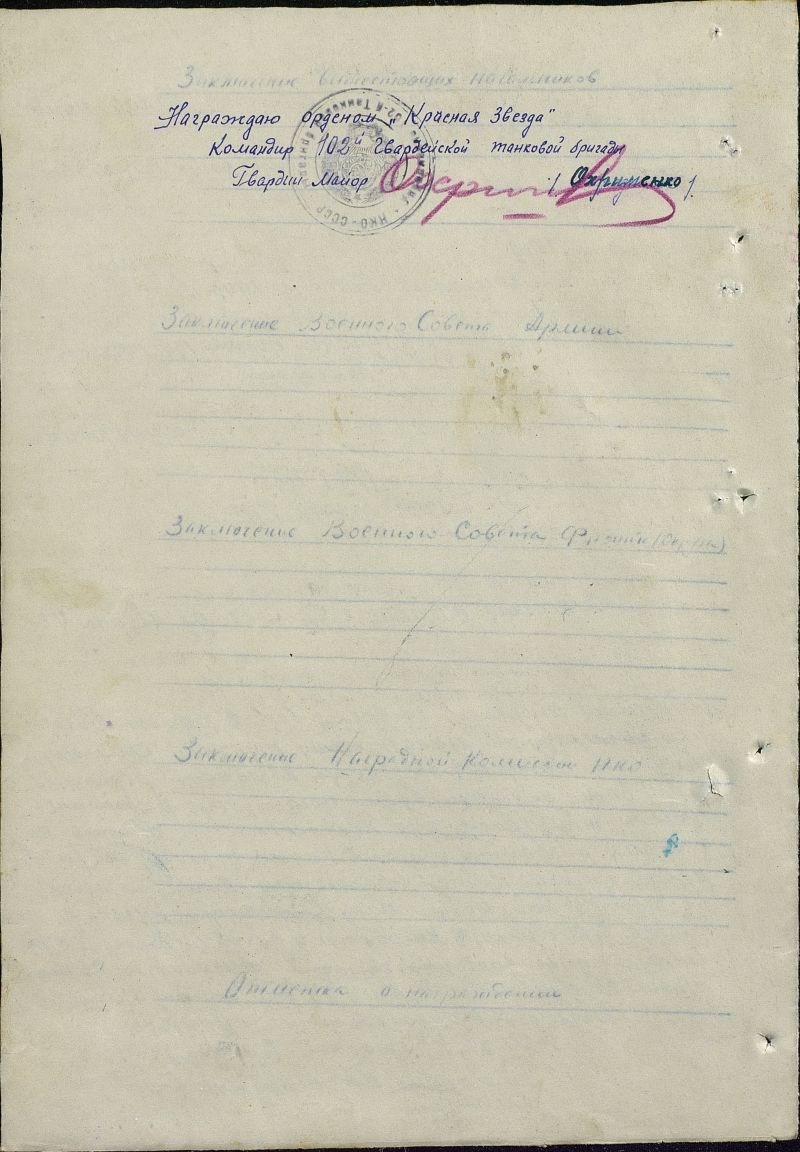 Заключение вышестоящих начальников
Награждаю орденом „Красная Звезда"
Командир 102й Гвардейской танковой бригады
Гвардии Майор / Охрименко /.
НКО - СССР
Заключение Военного Совета Армии
Заключение Военного Совета Фронта (Округа)
Заключение Наградной Комиссии НКО
Отметка о награждении